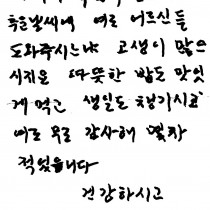 추운날씨에 여로 어르신들
도와주시는냐 고생이 많으
시지요 따뜻한 밥도 맛잇
게 먹고 생일도 챙기시고
여로 모로 감사해 몇자
적었읍니다
건강하시고